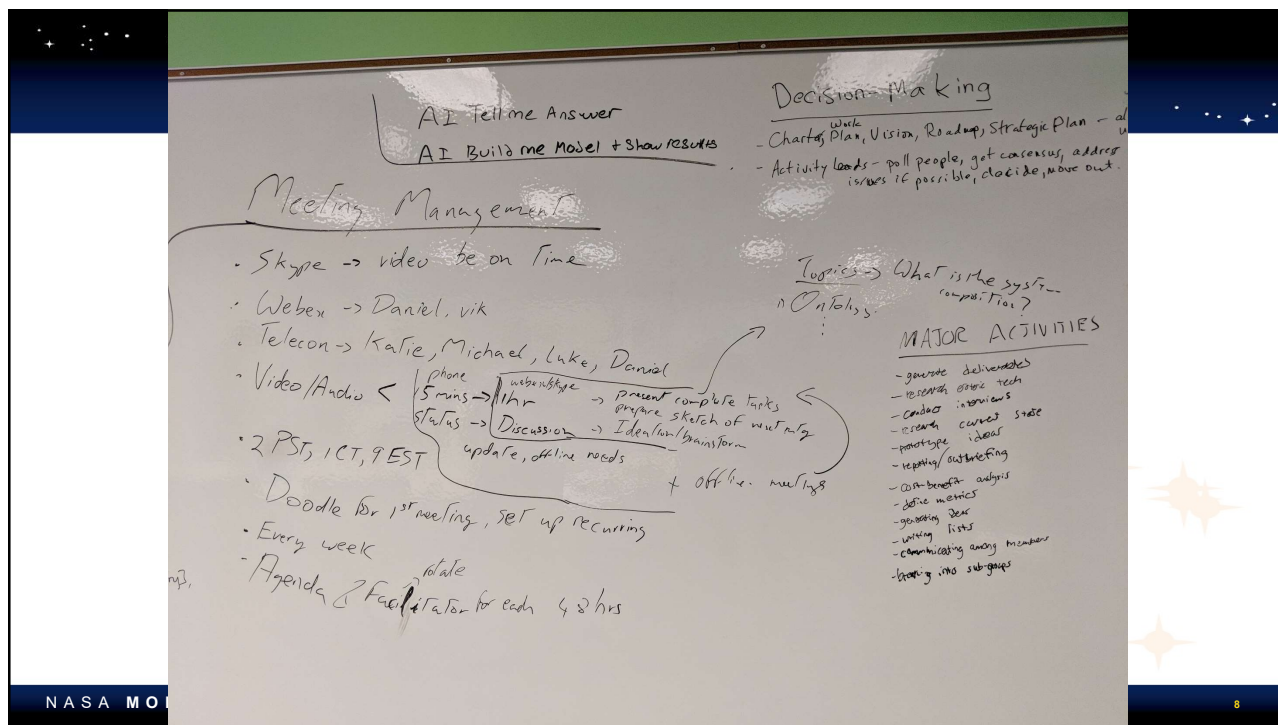 AI Tell me Answer
AI Build me Model + Show results
Decision-Making
Work
- Charter, Plan, Vision, Roadmap, Strategic Plan -
- Activity Leads - poll people, get consensus, address
issues if possible, decide, move out.
Meeting Management
• Skype -> video be on Time
• Webex -> Daniel, vik
• Telecon -> Katie, Michael, Luke, Daniel
• Video/Audio <
phone
15 mins -> 1hr
status -> Discussion
webex/skype
-> present complete tasks
prepare sketch of next mtg
-> Ideation/brainstorm
update, offline needs
+ offline meetings
• 2 PST, 1 CT, 9 EST
• Doodle for 1st meeting, set up recurring
• Every week
rotate
- Agenda & Facilitator for each 48 hrs
Topics -> What is the system
composition?
Ontology
MAJOR ACTIVITIES
- generate deliverables
- research exotic tech
- conduct interviews
- research current state
- prototype ideas
- reporting/outbriefing
- cost-benefit analysis
- define metrics
- generating ideas
- writing lists
- communicating among members
- breaking into sub-groups
NASA MO
8